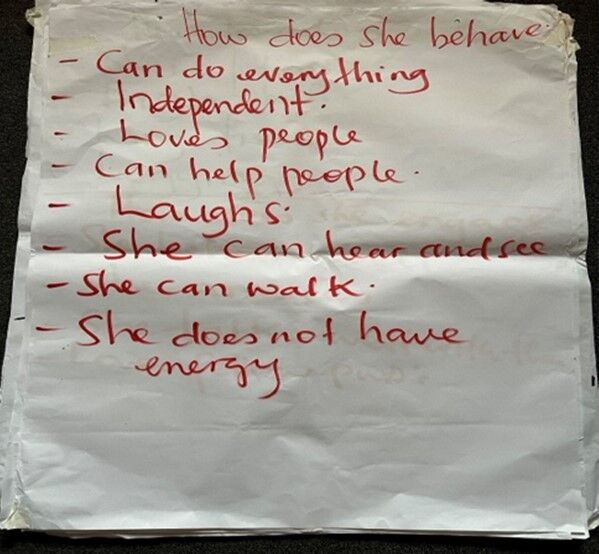 How does she behave.
- Can do everything
- Independent.
- Loves people
- Can help people.
- Laughs.
- She can hear and see
- She can walk.
- She does not have
energy